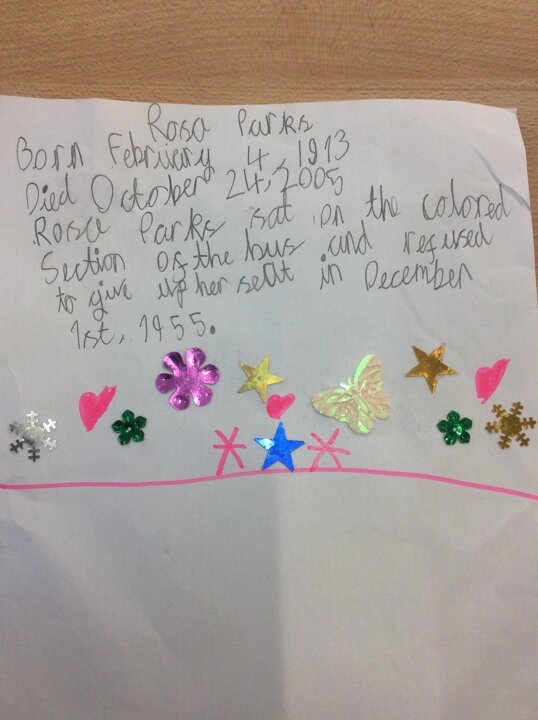 Rosa Parks
Born February 4, 1913
Died October 24, 2005
Rosa Parks sat on the colored
Section of the bus and refused
to give up her seat in December
1st, 1955.